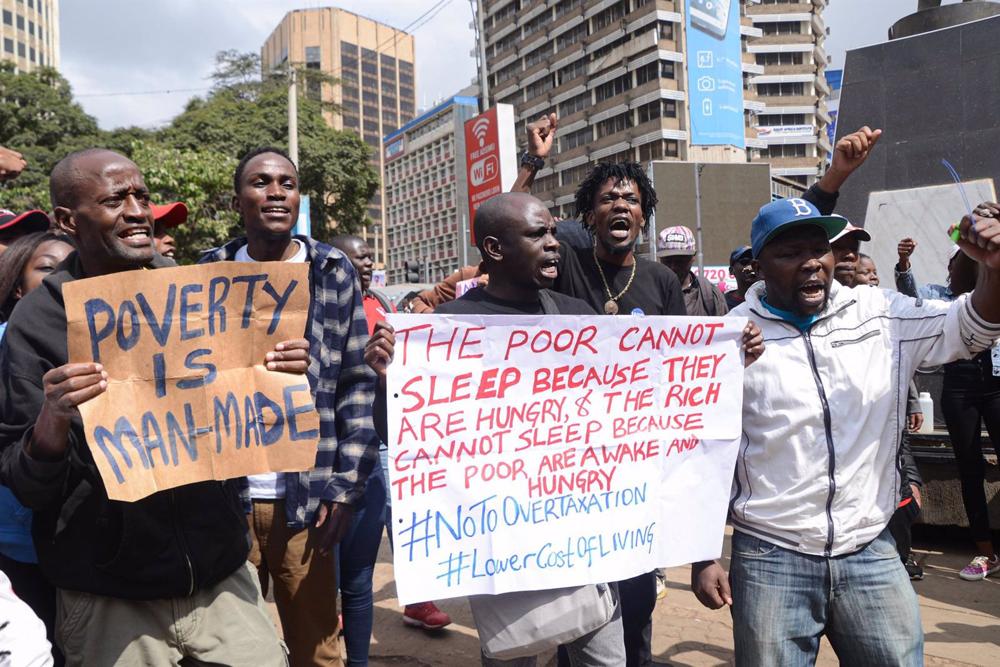 POVERTY
IS
MAN-MADE
THE POOR CANNOT
SLEEP BECAUSE THEY
ARE HUNGRY, & THE RICH
CANNOT SLEEP BECAUSE
THE POOR ARE AWAKE AND
HUNGRY
#NOTOOVERTAXATION
#LOWERCOSTOFLIVING
WiFi
B
720